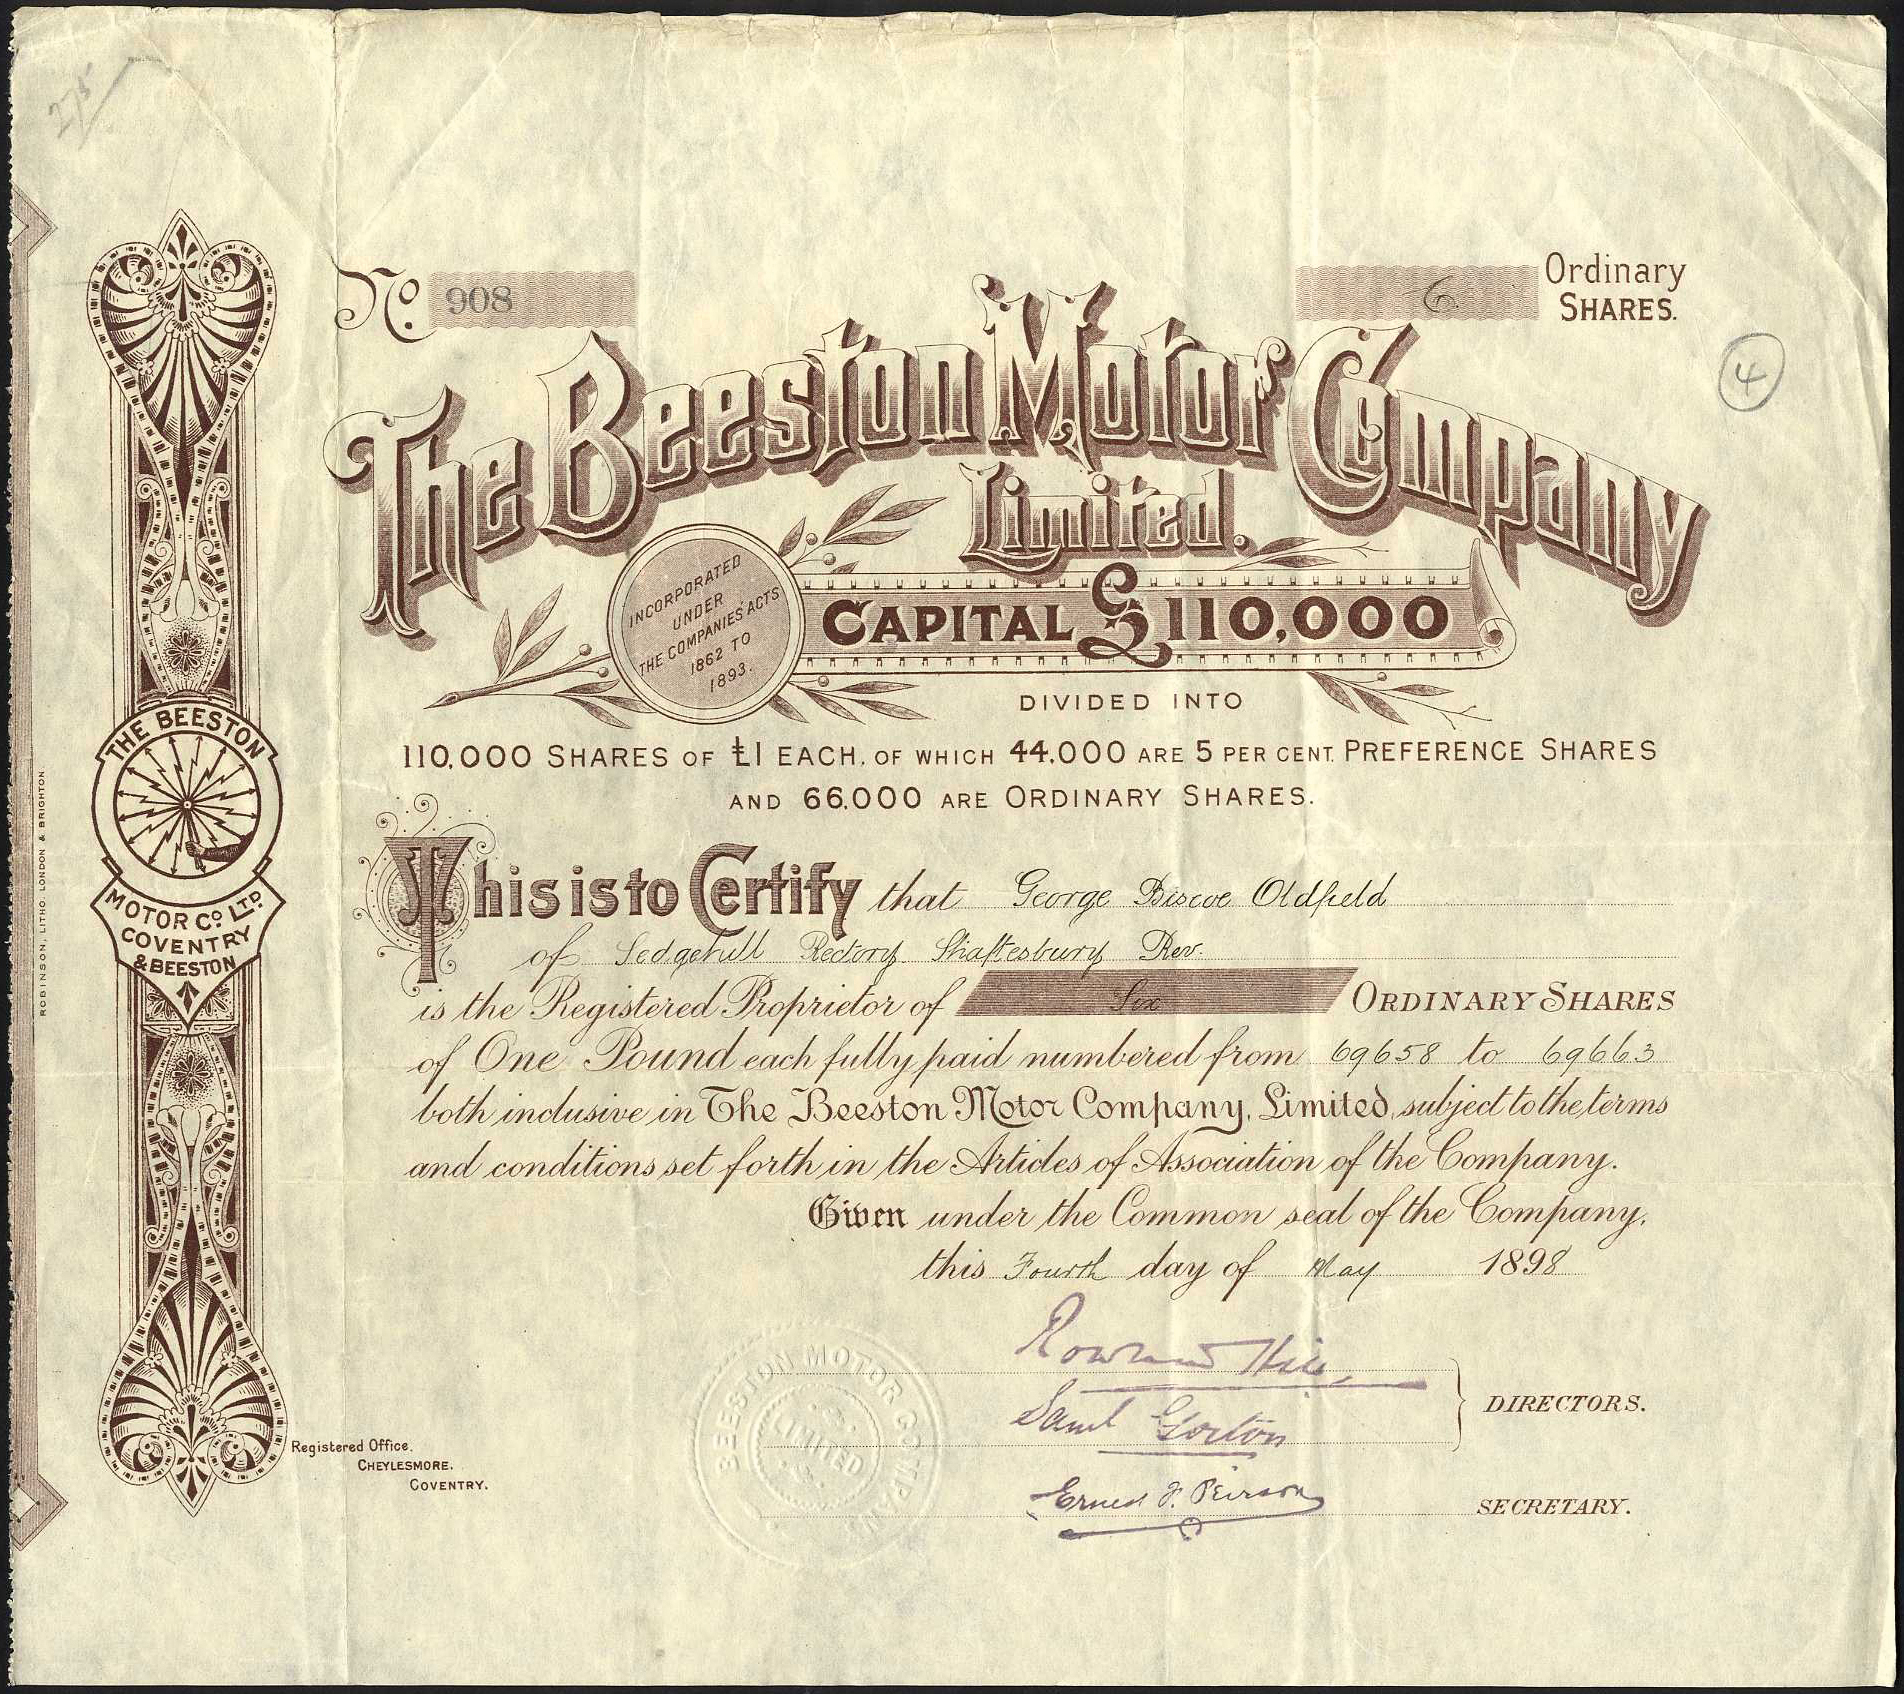 275
No. 908
6 Ordinary
SHARES.
4
The Beeston Motor Company
Limited.
INCORPORATED
UNDER
THE COMPANIES ACTS
1862 TO
1893.
CAPITAL £110,000
DIVIDED INTO
110,000 SHARES OF £1 EACH, OF WHICH 44,000 ARE 5 PER CENT. PREFERENCE SHARES
AND 66,000 ARE ORDINARY SHARES.
This is to Certify that George Biscoe Oldfield
of Sedgehill Rectory Shaftesbury Rev.
is the Registered Proprietor of Six ORDINARY SHARES
of One Pound each fully paid numbered from 69658 to 69663
both inclusive in The Beeston Motor Company, Limited, subject to the terms
and conditions set forth in the Articles of Association of the Company.
Given under the Common seal of the Company,
this Fourth day of May 1898
Rowland Hill
Saml Gorton
DIRECTORS.
Ernest F. Peirson
SECRETARY.
BEESTON MOTOR COMPANY
LIMITED
Registered Office.
CHEYLESMORE.
COVENTRY.
THE BEESTON
MOTOR CO LTD.
COVENTRY
& BEESTON
ROBINSON, LITHO. LONDON & BRIGHTON